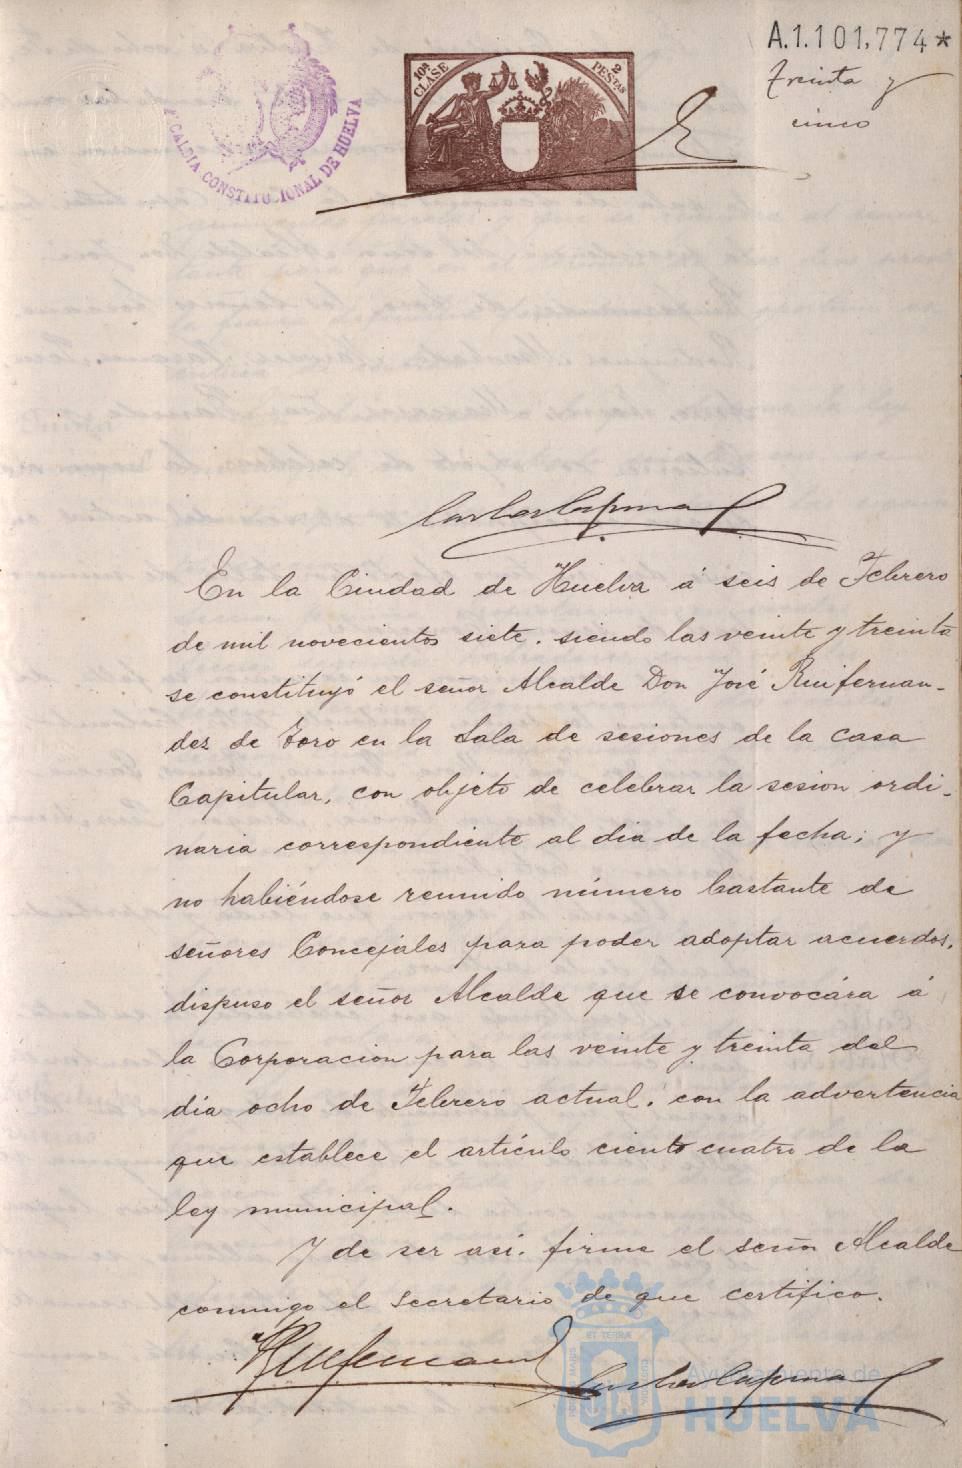 A.1.101,774*
treinta y
cinco
ALCALDIA CONSTITUCIONAL DE HUELVA
10ª CLASE
2 PESTAS
En la Ciudad de Huelva á seis de Febrero
de mil novecientos siete. siendo las veinte y treinta
se constituyó el señor Alcalde Don José Ruifernan-
dez de Toro en la Sala de sesiones de la casa
Capitular, con objeto de celebrar la sesion ordi-
naria correspondiente al dia de la fecha; y
no habiéndose reunido número bastante de
señores Concejales para poder adoptar acuerdos,
dispuso el señor Alcalde que se convocára á
la Corporacion para las veinte y treinta del
dia ocho de Febrero actual, con la advertencia
que establece el artículo ciento cuatro de la
ley municipal.
Y de ser asi. firma el señor Alcalde
conmigo el Secretario de que certifico.
Ayuntamiento de
HUELVA